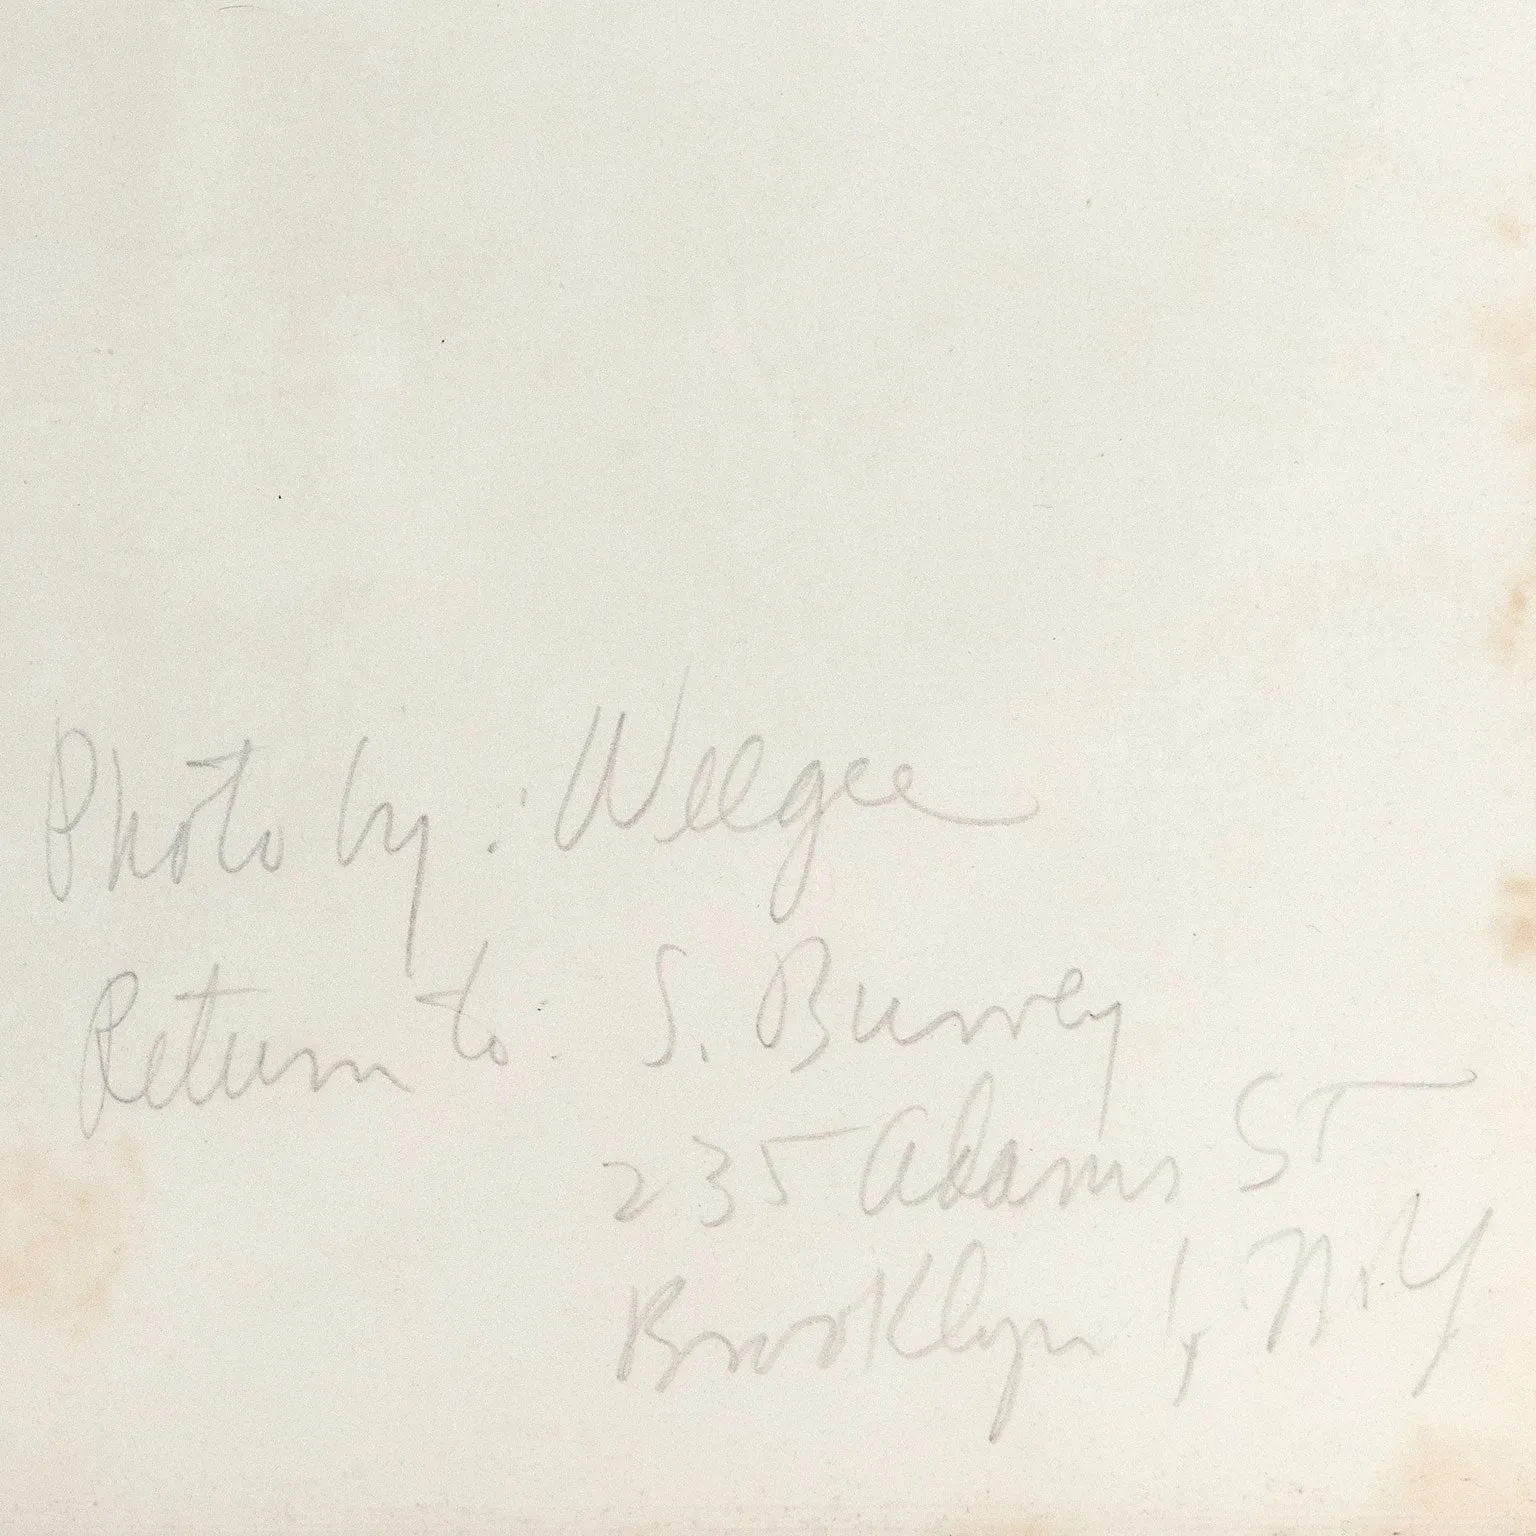 Photo by: Weegee
Return to: S. Burrey
235 Adams ST
Brooklyn 1, N.Y